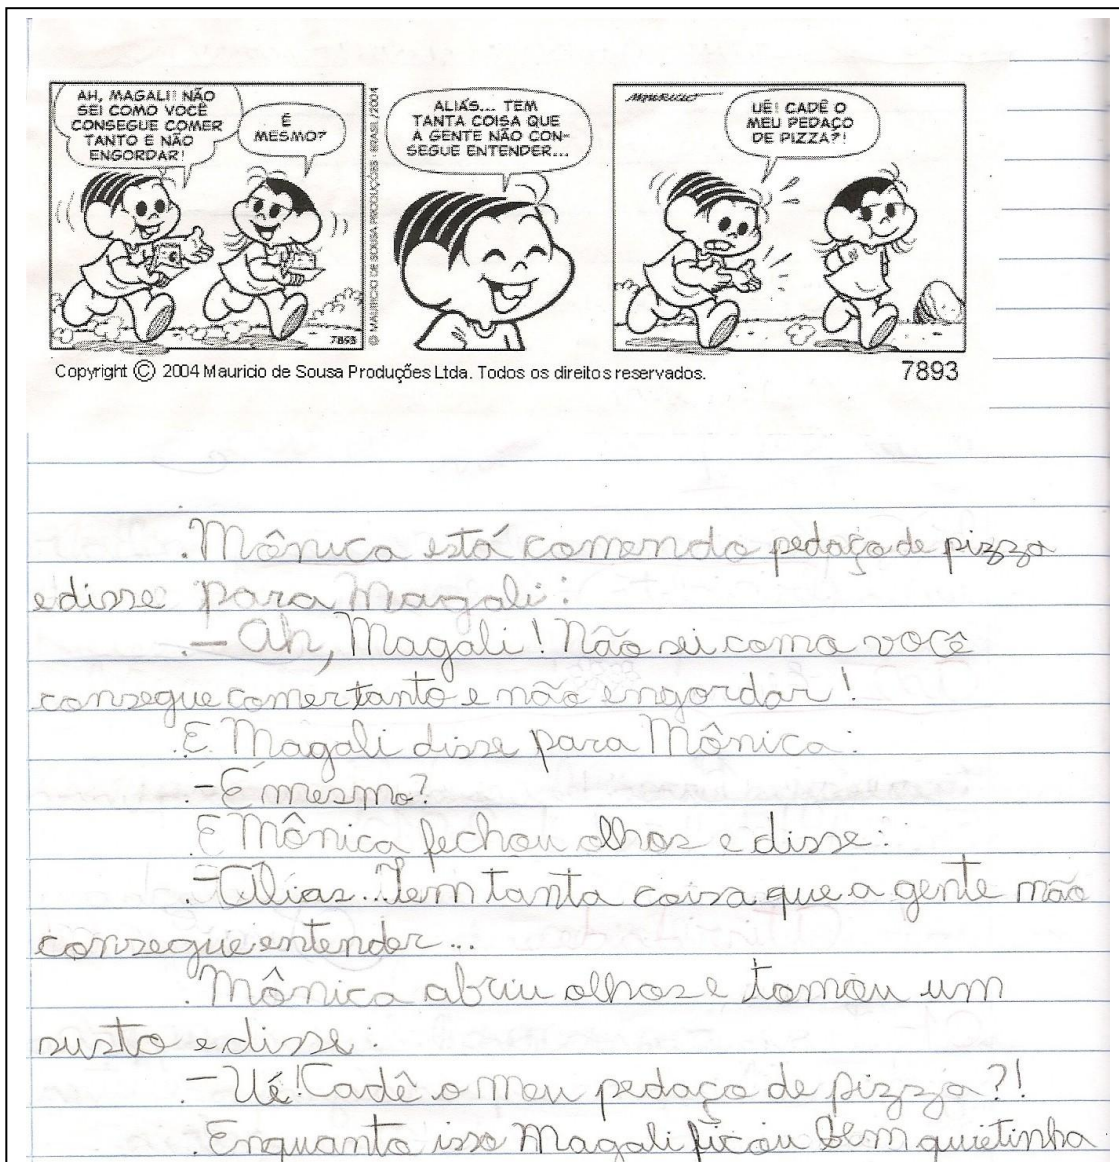 AH, MAGALI! NÃO
SEI COMO VOCÊ
CONSEGUE COMER
TANTO E NÃO
ENGORDAR!
É
MESMO?
7893
© MAURICIO DE SOUSA PRODUÇÕES - BRASIL/2004
ALIÁS... TEM
TANTA COISA QUE
A GENTE NÃO CON-
SEGUE ENTENDER...
MAURICIO
UÉ! CADÊ O
MEU PEDAÇO
DE PIZZA?!
Copyright © 2004 Mauricio de Sousa Produções Ltda. Todos os direitos reservados.
7893
.Mônica está comendo pedaço de pizza
e disse para Magali:
.- Ah, Magali! Não sei como você
consegue comer tanto e não engordar!
.E Magali disse para Mônica:
.- É mesmo?
.E Mônica fechou olhos e disse:
.- Alias...Tem tanta coisa que a gente não
consegue entender...
.Mônica abriu olhos e tomou um
susto e disse:
.- Ué! Cadê o meu pedaço de pizza?!
.Enquanto isso Magali ficou bem quietinha